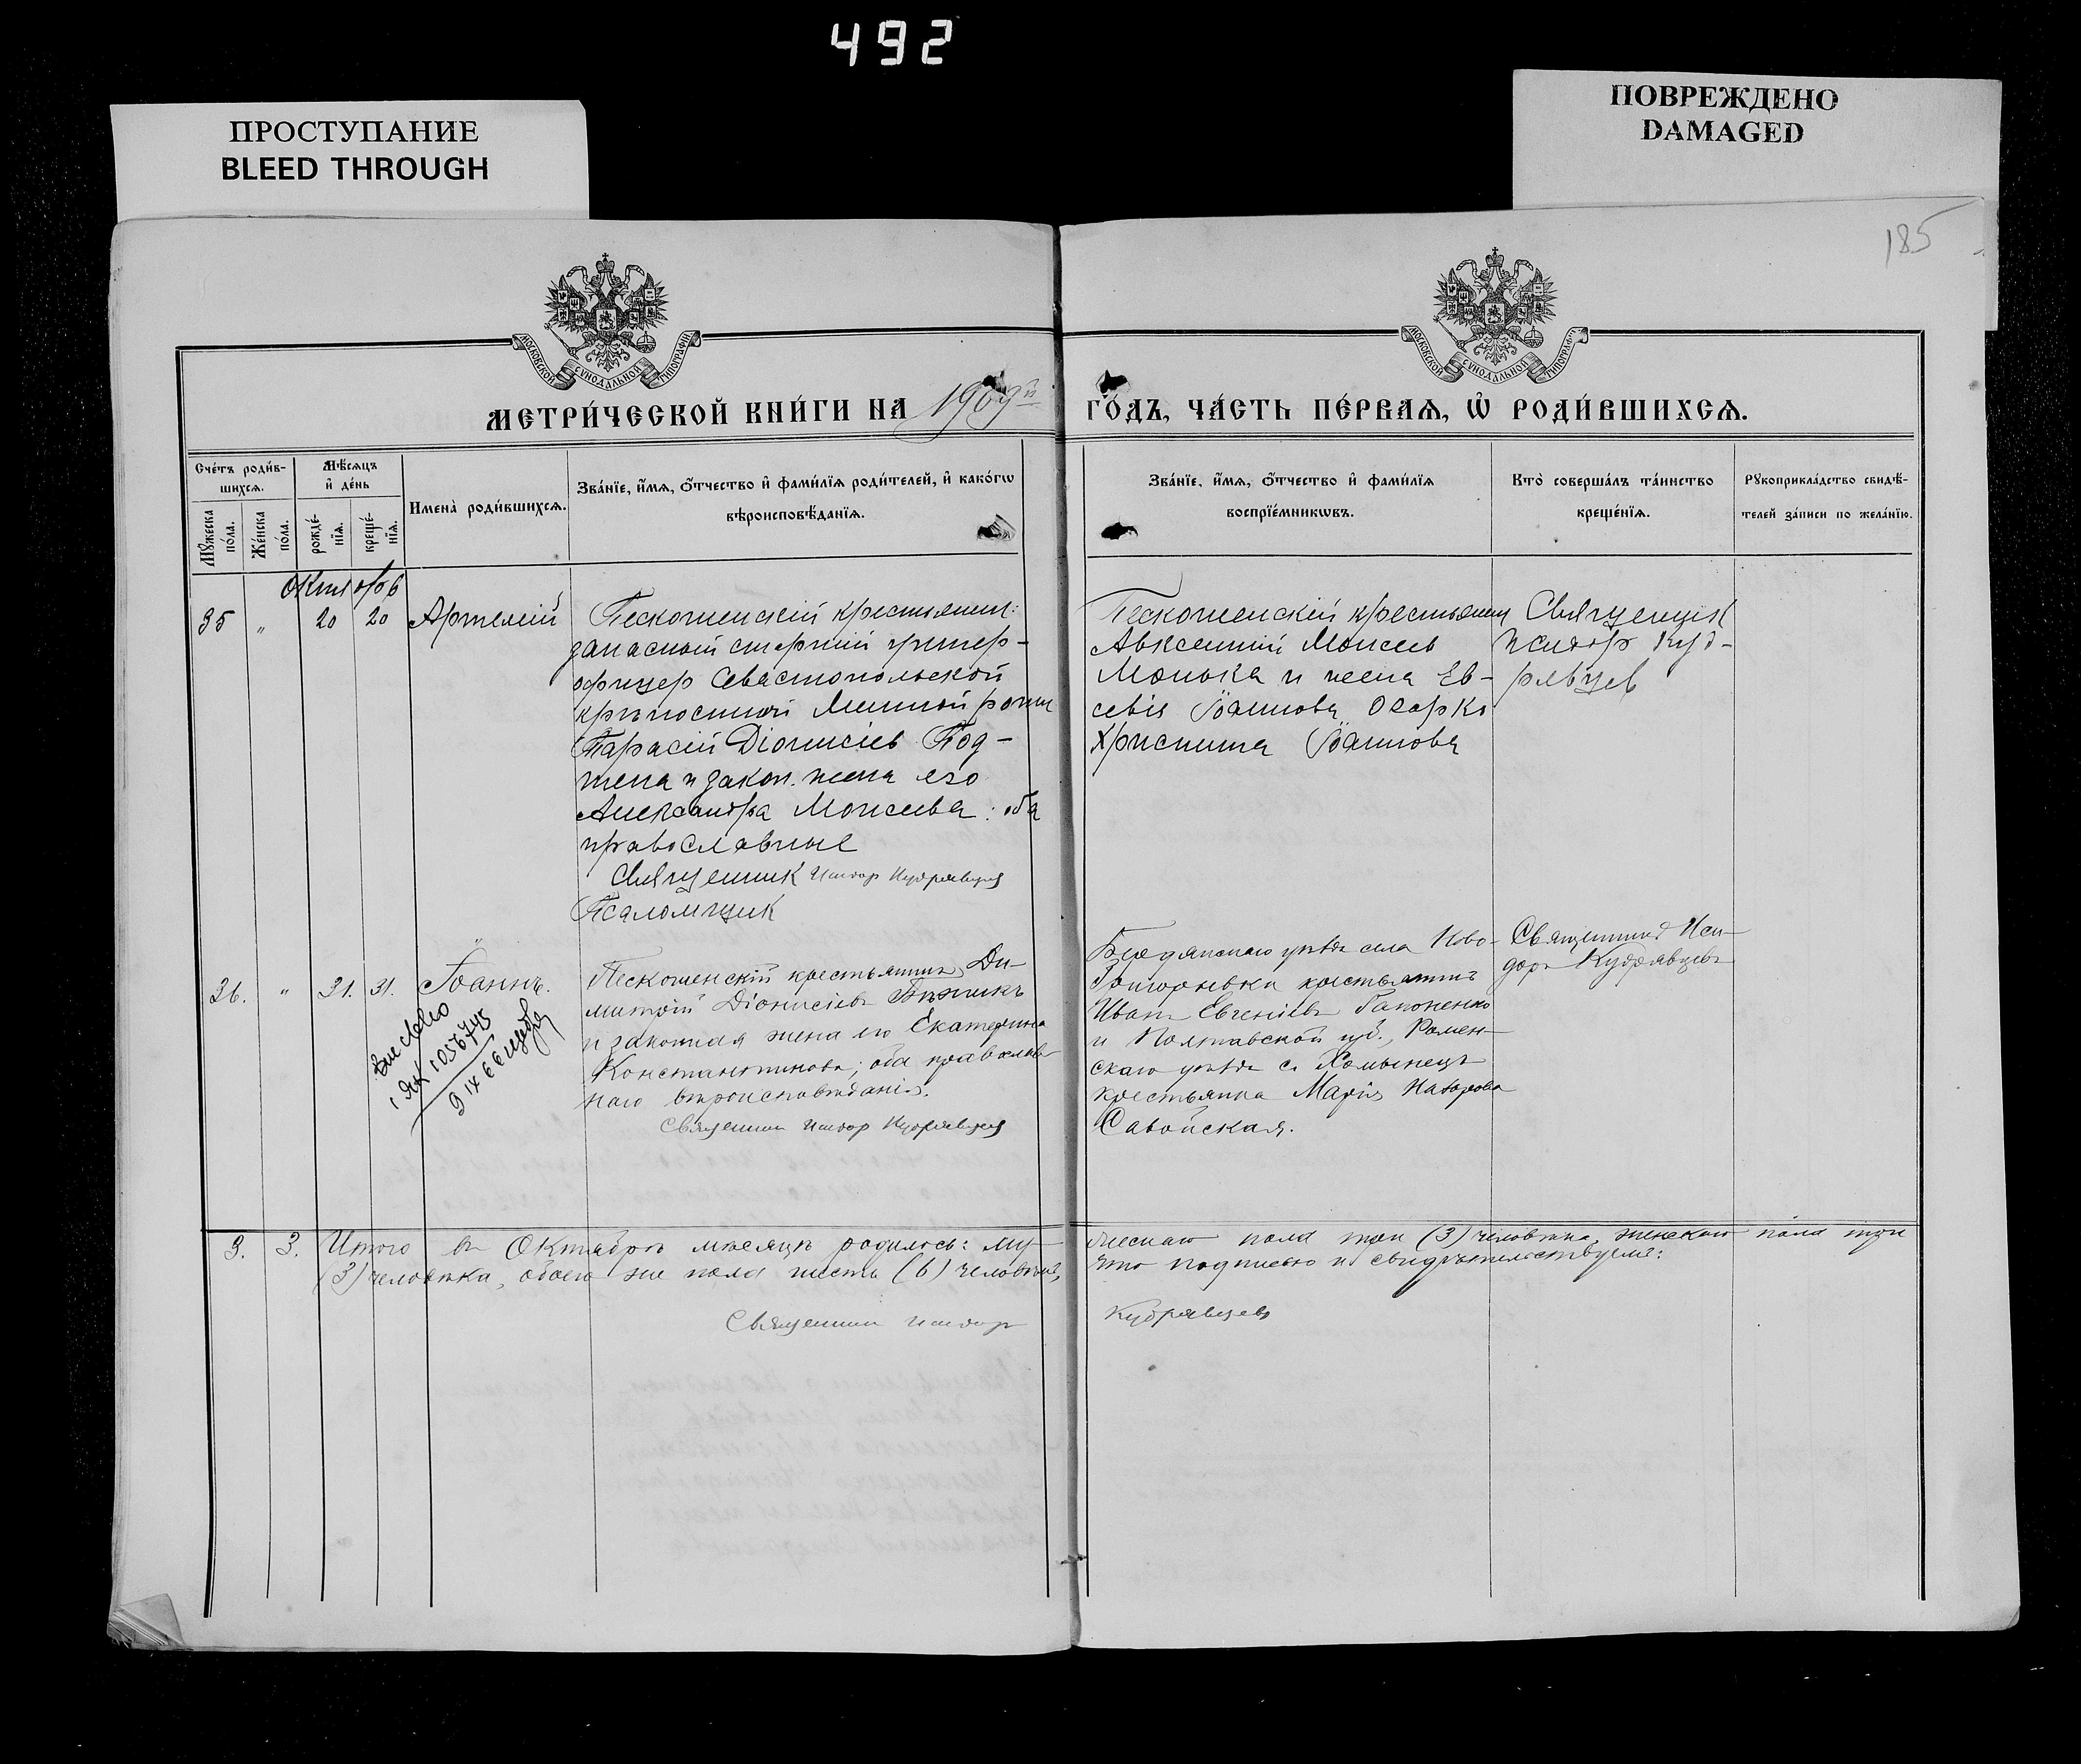 492
ПРОСТУПАНИЕ
BLEED THROUGH
ПОВРЕЖДЕНО
DAMAGED
185
МОСКОВСКОЙ СУНОДАЛЬНОЙ ТИПОГРАФІИ
МОСКОВСКОЙ СУНОДАЛЬНОЙ ТИПОГРАФІИ
МЕТРИ́ЧЕСКОЙ КНИ́ГИ НА 1909й ГО́ДЪ, ЧА́СТЬ ПЕ́РВАѦ, Ѡ҆ РОДИ́ВШИХСѦ.
Сче́тъ роди́в-
шихсѧ.
Мꙋ́жеска по́ла.
Же́нска по́ла.
Мѣ́сѧцъ
и҆ де́нь
рожде́-
нїѧ.
креще́-
нїѧ.
И҆мена̀ роди́вшихсѧ.
Зва́нїе, и҆́мѧ, ѻ҆́тчество и҆ фами́лїѧ роди́телей, и҆ како́гѡ
вѣроисповѣ́данїѧ.
Зва́нїе, и҆́мѧ, ѻ҆́тчество и҆ фами́лїѧ
воспрїе́мникѡвъ.
Кто̀ соверша́лъ та́инство
креще́нїѧ.
Рꙋкоприкла́дство свидѣ́-
телей за́писи по жела́нїю.
Октябрь
35 " 20 20 Артемій
Пескошенскій крестьянин:
запасный старший унтер-
офицер Севастопольской
крѣпостной Минной роты
Тарасій Діонисіев Под-
и закон. жена его
Александра Моисеева: оба
православные
Священник Исидор Кудрявцев
Псаломщик
Пескошенскій крестьянин
Авксентий Моисеев
и жена Ев-
Іоаннова
Христина Іоаннова
Священник
Исидор Куд-
рявцев
36. " 31. 31. Іоаннъ.
Выслано
1 ЯК 1056745
9 IX 66
Пескошенскій крестьянинъ Ди-
митрій Діонисіевъ
и законная жена его Екатерина
Константинова; оба православ-
наго вѣроисповѣданія.
Священник Исидор Кудрявцев
Бердянскаго уѣзда села Ново-
Григорьевки крестьянинъ
Иванъ Евгеніевъ Гапоненко
и Полтавской губ., Ромен-
скаго уѣзда с. Хоминецъ
крестьянка Марія Назарова
Савойская.
Священникъ Иси-
доръ Кудрявцевъ
3. 3. Итого въ Октябрѣ мѣсяцѣ родилось: му-
жескаго пола три (3) человѣка, женскаго пола три
(3) человѣка, обоего же пола шесть (6) человѣкъ,
что подписью и свидѣтельствуемъ:
Священник Исидор Кудрявцевъ